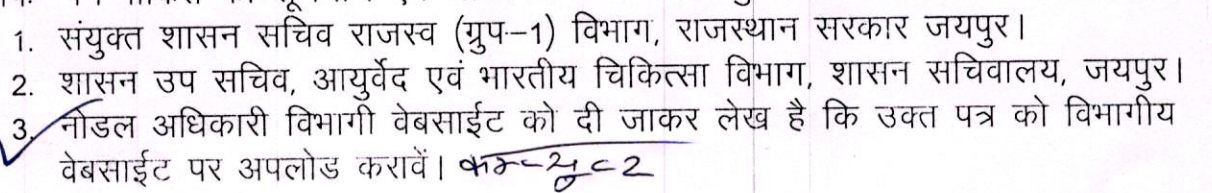 1. संयुक्त शासन सचिव राजस्व (ग्रुप–1) विभाग, राजस्थान सरकार जयपुर।
2. शासन उप सचिव, आयुर्वेद एवं भारतीय चिकित्सा विभाग, शासन सचिवालय, जयपुर।
3. नोडल अधिकारी विभागी वेबसाईट को दी जाकर लेख है कि उक्त पत्र को विभागीय
वेबसाईट पर अपलोड करावें।